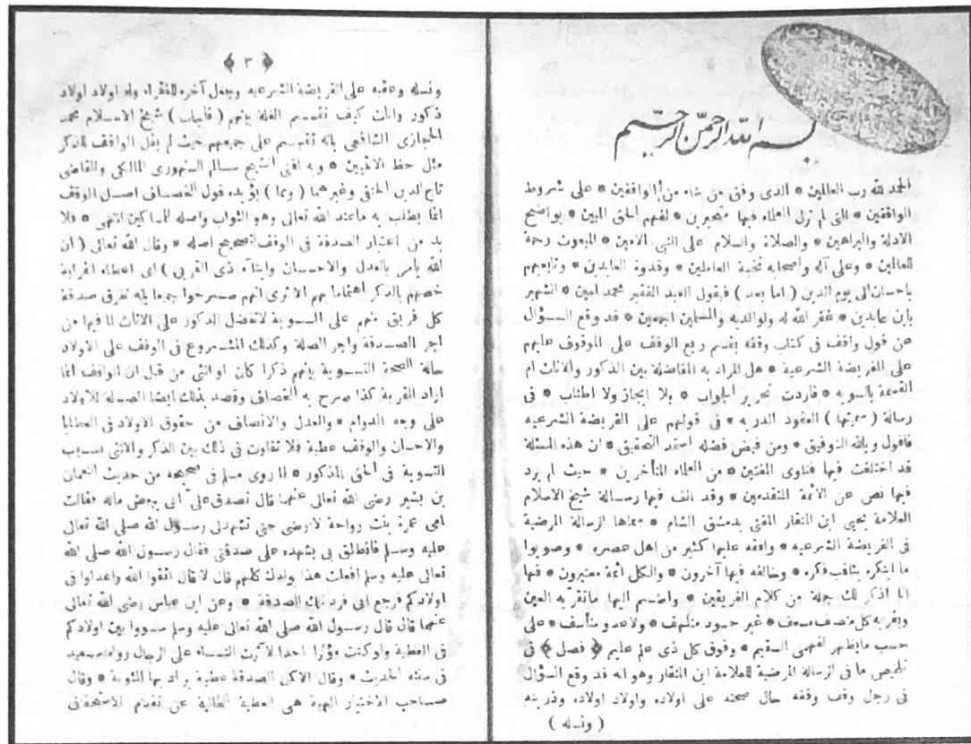 بسم الله الرحمن الرحيم
الحمد لله رب العالمين * الذى وفق من شاء من الواقفين * على شروط
الواقفين * التى لم تزل العلماء فيها متحيرين * لفهم الحق المبين * بواضح
الادلة والبراهين * والصلاة والسلام على النبى الامين * المبعوث رحمة
للعالمين * وعلى آله واصحابه نخبة العاملين * وقدوة العابدين * وتابعيهم
باحسان الى يوم الدين ( اما بعد ) فيقول العبد الفقير محمد امين * الشهير
بابن عابدين * غفر الله له ولوالديه والمسلمين اجمعين * قد وقع السؤال
عن قول واقف فى كتاب وقفه يقسم ريع الوقف على الموقوف عليهم
على الفريضة الشرعية * هل المراد به المفاضلة بين الذكور والاناث ام
القسمة بالسويه * فاردت تحرير الجواب * بلا ايجاز ولا اطناب * فى
رسالة ( سميتها ) العقود الدريه * فى قولهم على الفريضة الشرعيه
فاقول وبالله التوفيق * ومن فيض فضله استمد التحقيق * ان هذه المسئلة
قد اختلفت فيها فتاوى المفتين * من العلماء المتأخرين * حيث لم يرد
فيها نص عن الائمة المتقدمين * وقد الف فيها رسالة شيخ الاسلام
العلامة يحيى ابن المنقار المفتى بدمشق الشام * سماها الرسالة المرضية
فى الفريضة الشرعيه * وافقه عليها كثير من اهل عصره * وصوبوا
ما ابتكره بثاقب فكره * وخالفه فيها آخرون * والكل ائمة معتبرون * فها
انا اذكر لك جملة من كلام الفريقين * واضم اليها ماتقر به العين
ويقر به كل منصف مسعف * غير حسود متلهف * ولا عدو متأسف * على
حسب مايظهر لفهمى السقيم * وفوق كل ذى علم عليم ﴿ فصل ﴾ فى
تلخيص ما فى الرسالة المرضية للعلامة ابن المنقار وهو انه قد وقع السؤال
فى رجل وقف وقفه حال صحته على اولاده واولاد اولاده وذريته
( ونسله )
﴿ ٣ ﴾
ونسله وعقبه على الفريضة الشرعيه وجعل آخره للفقراء وله اولاد اولاد
ذكور واناث كيف تقسم الغلة بينهم ( فاجاب ) شيخ الاسلام محمد
الحجازى الشافعى بانه تقسم على جميعهم حيث لم يقل الواقف للذكر
مثل حظ الانثيين * وبه افتى الشيخ سالم السنهورى المالكى والقاضى
تاج الدين الحنفى وغيرهما ( ومما ) يؤيده قول الخصاف اصل الوقف
انما يطلب به ماعند الله تعالى وهو الثواب واصله للمساكين انتهى * فلا
بد من اعتبار الصدقة فى الوقف لتصحيح اصله * وقال الله تعالى ( ان
الله يأمر بالعدل والاحسان وايتآء ذى القربى ) اى اعطاء القرابة
خصهم بالذكر اهتماما بهم الا ترى انهم صرحوا جميعا بانه تفرق صدقة
كل فريق منهم على السوية لاتفضل الذكور على الاناث لما فيها من
اجر الصدقة واجر الصلة وكذلك المشروع فى الوقف على الاولاد
حالة الصحة التسوية بينهم ذكرا كان او انثى من قبل ان الواقف انما
اراد القربة كذا صرح به الخصاف وقصد بذلك ايضا الصلة للاولاد
على وجه الدوام * والعدل والانصاف من حقوق الاولاد فى العطايا
والاحسان والوقف عطية فلا تفاوت فى ذلك بين الذكر والانثى بسبب
التسوية فى الحق المذكور * لما روى مسلم فى صحيحه من حديث النعمان
بن بشير رضى الله تعالى عنهما قال تصدق على ابى ببعض ماله فقالت
امى عمرة بنت رواحة لا ارضى حتى تشهد لى رسول الله صلى الله تعالى
عليه وسلم فانطلق بى يشهده على صدقتى فقال رسول الله صلى الله
تعالى عليه وسلم افعلت هذا بولدك كلهم قال لا قال اتقوا الله واعدلوا فى
اولادكم فرجع ابى فرد تلك الصدقة * وعن ابن عباس رضى الله تعالى
عنهما قال قال رسول الله صلى الله تعالى عليه وسلم سووا بين اولادكم
فى العطية ولو كنت مؤثرا احدا لآثرت النساء على الرجال رواه سعيد
فى سننه الحديث * وقال الاكمل الصدقة عطية يراد بها المثوبة * وقال
صاحب الاختيار الهبة هى العطية الخالية عن تقدم الاستحقاق